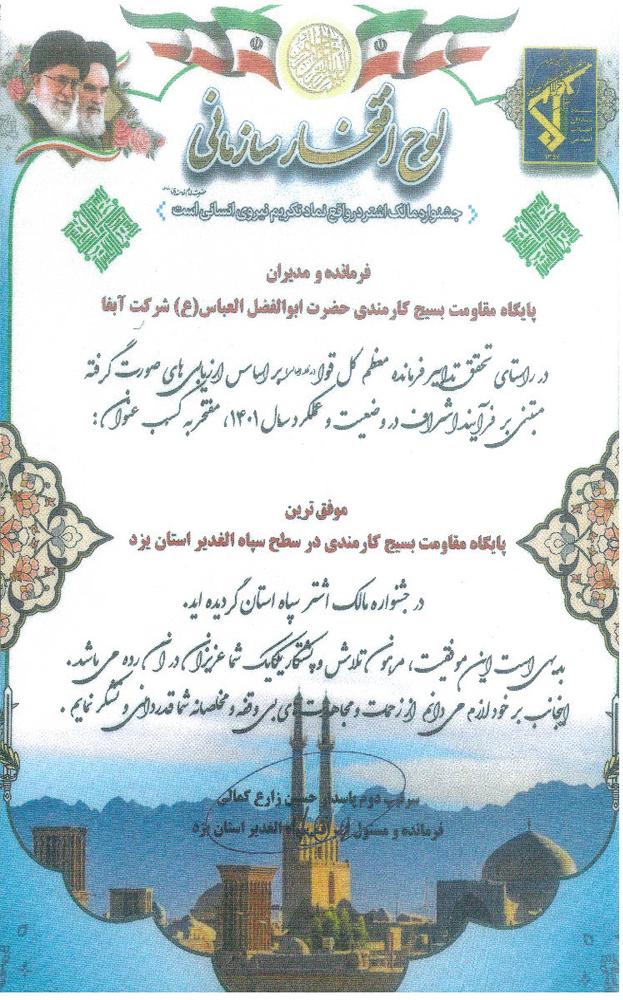 لوح افتخار سازمانی
جشنواره مالک اشتر در واقع نماد تکریم نیروی انسانی است
فرمانده و مدیران
پایگاه مقاومت بسیج کارمندی حضرت ابوالفضل العباس(ع) شرکت آبفا
در راستای تحقق تدابیر فرمانده معظم کل قوا بر اساس ارزیابی های صورت گرفته
مبتنی بر فرآیند اشراف در وضعیت و عملکرد سال ۱۴۰۱، مفتخر به کسب عنوان :
موفق ترین
پایگاه مقاومت بسیج کارمندی در سطح سپاه الغدیر استان یزد
در جشنواره مالک اشتر سپاه استان گردیده اید.
بدیهی است این موفقیت، مرهون تلاش و پشتکار یکایک شما عزیزان در آن رده می باشد.
اینجانب بر خود لازم می دانم از زحمات و مجاهدت های بی وقفه و مخلصانه شما قدردانی و تشکر نمایم .
سرتیپ دوم پاسدار حسین زارع کمالی
فرمانده و مسئول سپاه الغدیر استان یزد